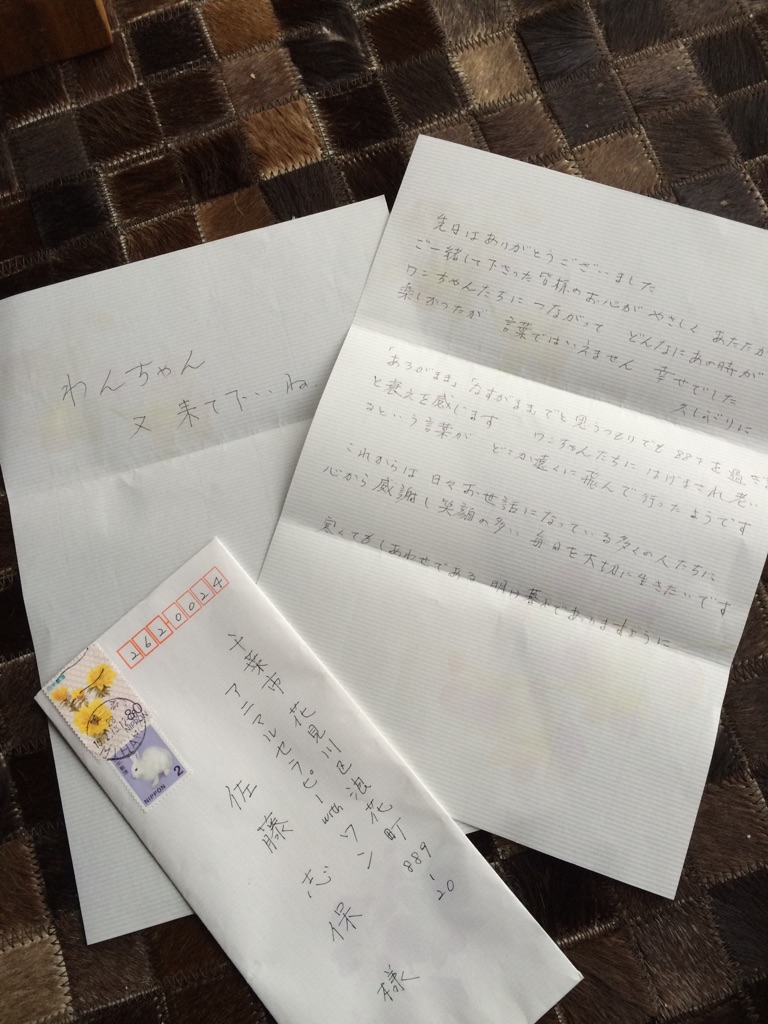 先日はありがとうございました
ご一緒して下さった皆様のお心が やさしく あたたか
ワンちゃんたちに つながって どんなにあの時が
楽しかったが 言葉ではいえません 幸せでした
久しぶりに
「あるがまま」「なすがまま」でと思うつもりでも 88才を過ぎ
と衰えを感じます ワンちゃんたちに はげまされ 老い
るという言葉が どこか遠くに飛んで行ったようです
これからは 日々お世話になっている多くの人たちに
心から感謝し 笑顔の多い 毎日を大切に生きたいです
寒くてもしあわせである 明け暮れでありますように
わんちゃん
又 来て下さいね.
2620024
千葉市 花見川区浪花町 889-20
アニマルセラピー with ワン
佐藤 志保 様
80
NIPPON
NIPPON 2